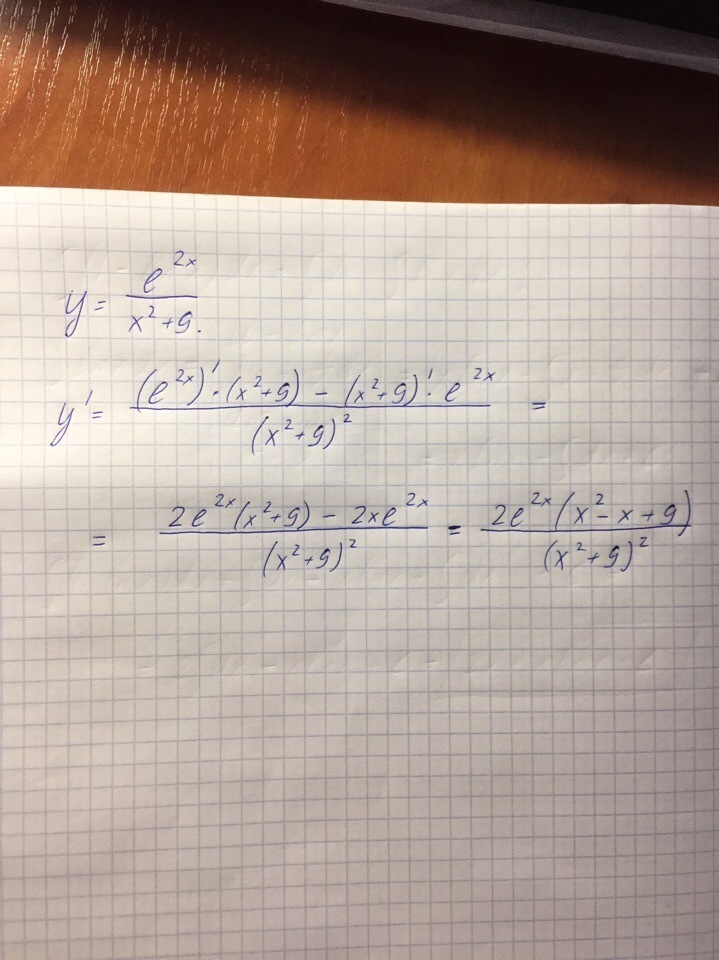 y = e^{2x} / (x² + 9).
y' = ((e^{2x})' · (x² + 9) − (x² + 9)' · e^{2x}) / (x² + 9)² =
= (2e^{2x}(x² + 9) − 2xe^{2x}) / (x² + 9)² = 2e^{2x}(x² − x + 9) / (x² + 9)²